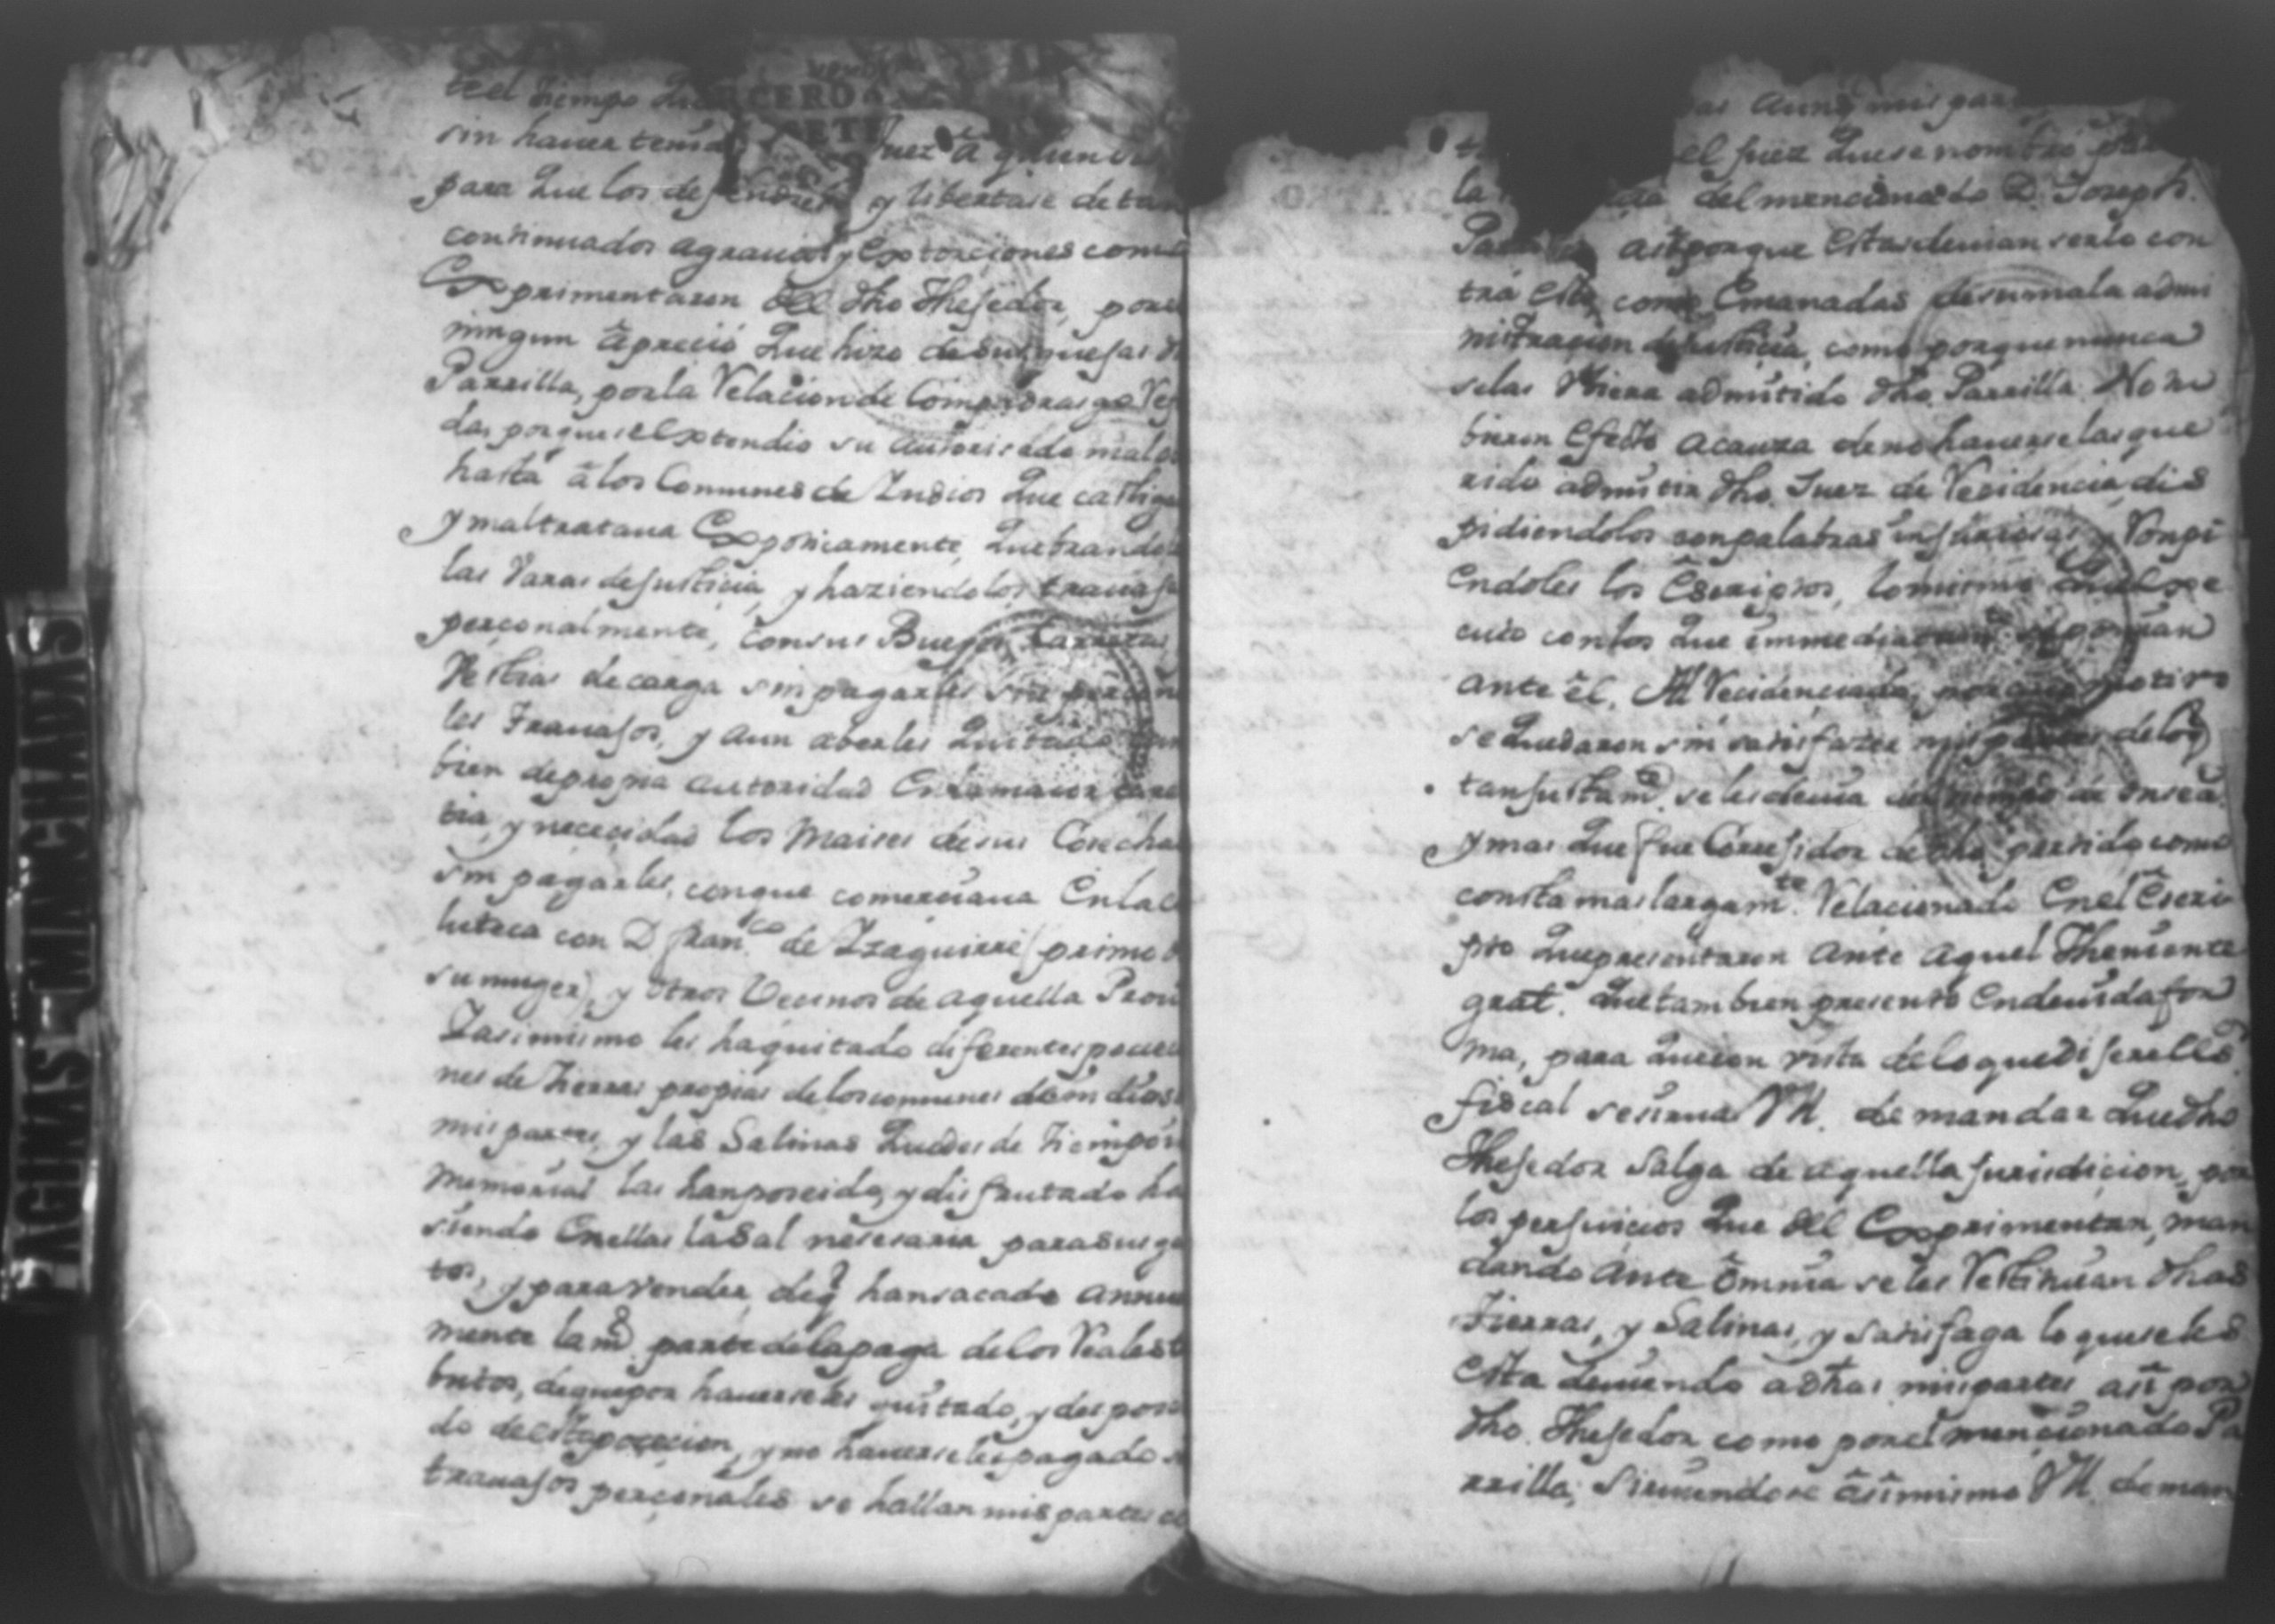 te el tiempo
sin haver tenid Juez â quien
para que los defendiese y libertase de tan
continuados agravios y extorciones como
Experimentaron dêl dho Thejedor, por
ningun âprecio que hizo de sus quejas
Parrilla, por la Relacion de Compadrasgo
da, porque se extendio su autorisada mal
hasta â los Comunes de Indios que castiga
y maltratava Exponicamente, quebrando
las Varas de justicia, y haziendolos travaja
perçonalmente, con sus Bueyes, Carretas,
Vestias de carga sin pagarles sus perçona
les Travajos, y aun aberles quitado tam
bien de propia autoridad En la maior cares
tia, y nececidad los Maises de sus Cosechas
sin pagarles, con que comerciava En la
luteca con D. Fran.co de Yzaguirre (primo
su muger) y otros Vecinos de aquella Prov
Y asimismo les ha quitado diferentes porcio
nes de Tierras propias de los comunes de indios
mis partes, y las Salinas que desde Tiempo in
memorial las han poseido, y disfrutado ha
siendo En ellas la Sal nesesaria para sus gas
tos, y para vender, de q han sacado annua
mente la m.or parte de la paga de los Reales t
butos, de que por haverseles quitado, y desposei
do de esta poçecion, y no haverseles pagado s
travajos perçonales se hallan mis partes
PAGINAS MANCHADAS
CERO
el juez que se nombró para
la del mencionado D. Joseph
Parrilla asi porque Estas devian serlo con
tra este, como Emanadas de su mala admi
nistracion de justicia, como porque nunca
se las Vbiera admitido dho. Parrilla. No tu
bieron Efecto a cauza de no haverselas que
rido admitir dho. Juez de Recidencia, dis
pidiendolos con palabras injuriosas y Rompi
endoles los Escriptos, lo mismo que Exe
cuto con los que immediatam.te se ponian
ante êl, Al Recidenciado, por cuio motivo
se quedaron sin satisfazer mis partes de lo q
tan justam.te se les devia del tiempo de onse a.s
y mas que fue Correjidor de dho. partido como
consta mas largam.te Relacionado En el Escri
pto que presentaron Ante aquel Theniente
gral. que tambien presento En devida for
ma, para que con vista de lo que dijere el S.r
fiscal se sirva VA. de mandar que dho
Thejedor Salga de aquella jurisdicion, por
los perjuicios que dêl Experimentan, man
dando Ante omnia se les Restituian dhas
Tierras, y Salinas, y satisfaga lo que se les
Esta deviendo a dhas mis partes asi por
dho. Thejedor como por el mencionado Pa
rrilla; Sirviendose âsimismo VA. de man